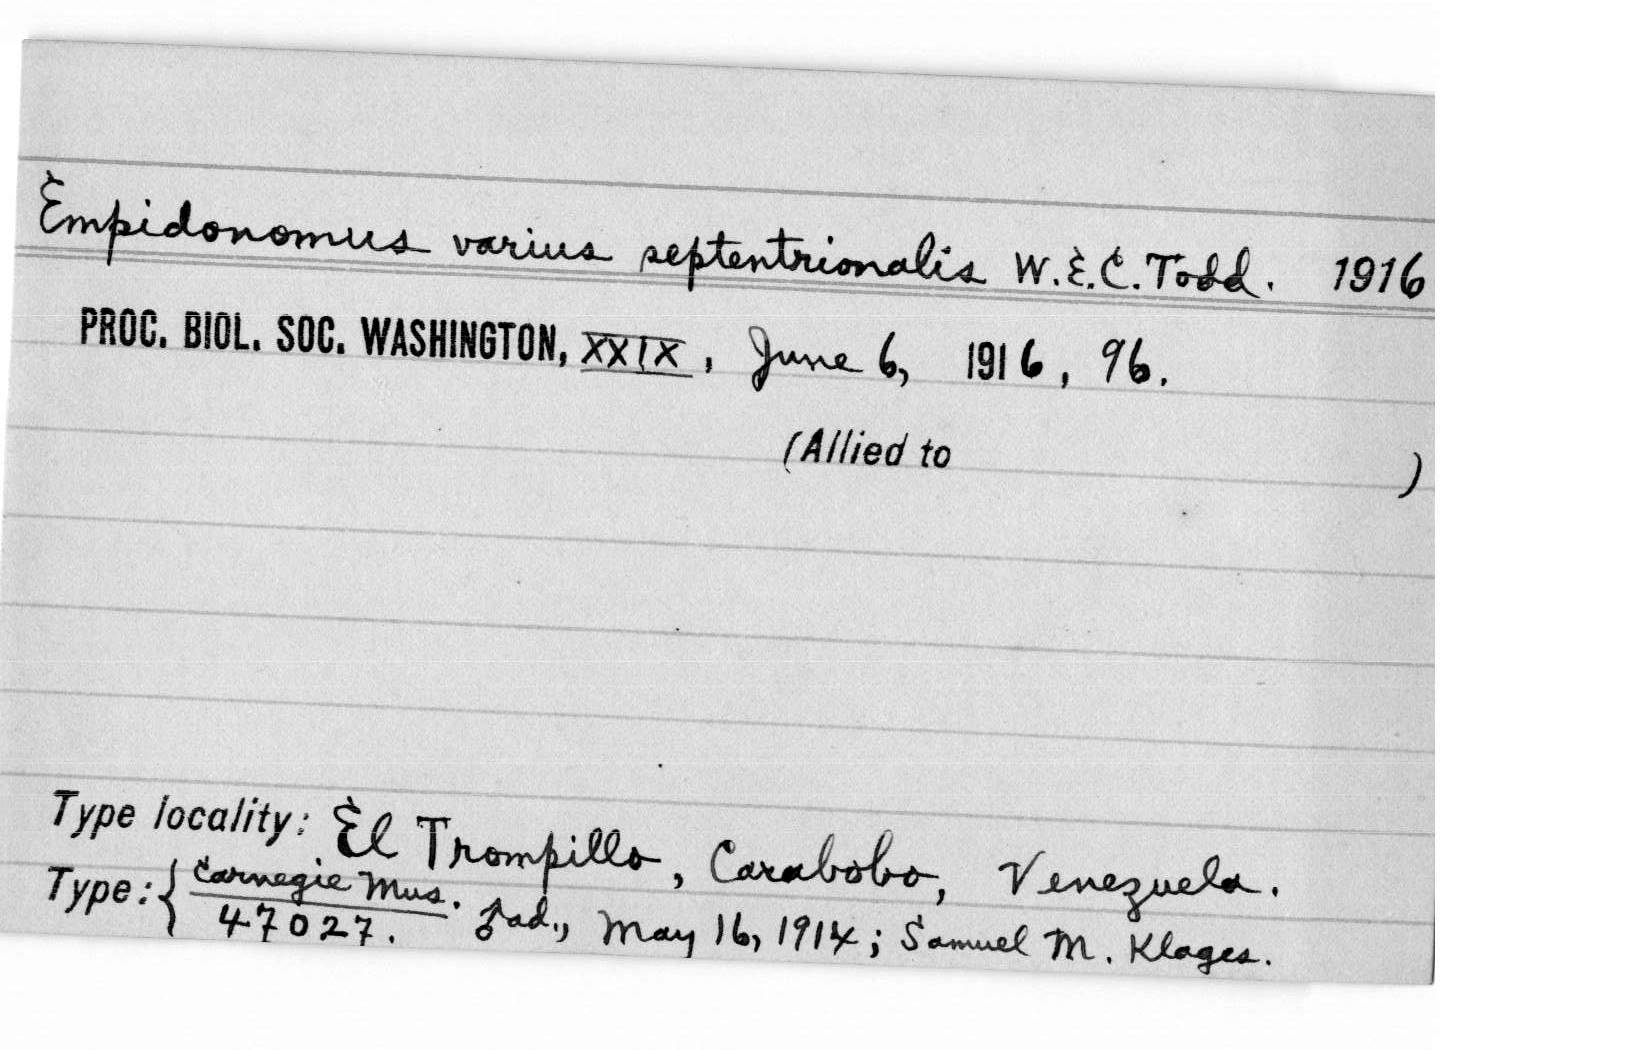 Empidonomus varius septentrionalis W.E.C. Todd. 1916
PROC. BIOL. SOC. WASHINGTON, XXIX, June 6, 1916, 96.
(Allied to )
Type locality: El Trompillo, Carabobo, Venezuela.
Type: { Carnegie Mus. ♂ ad., May 16, 1914; Samuel M. Klages.
47027.